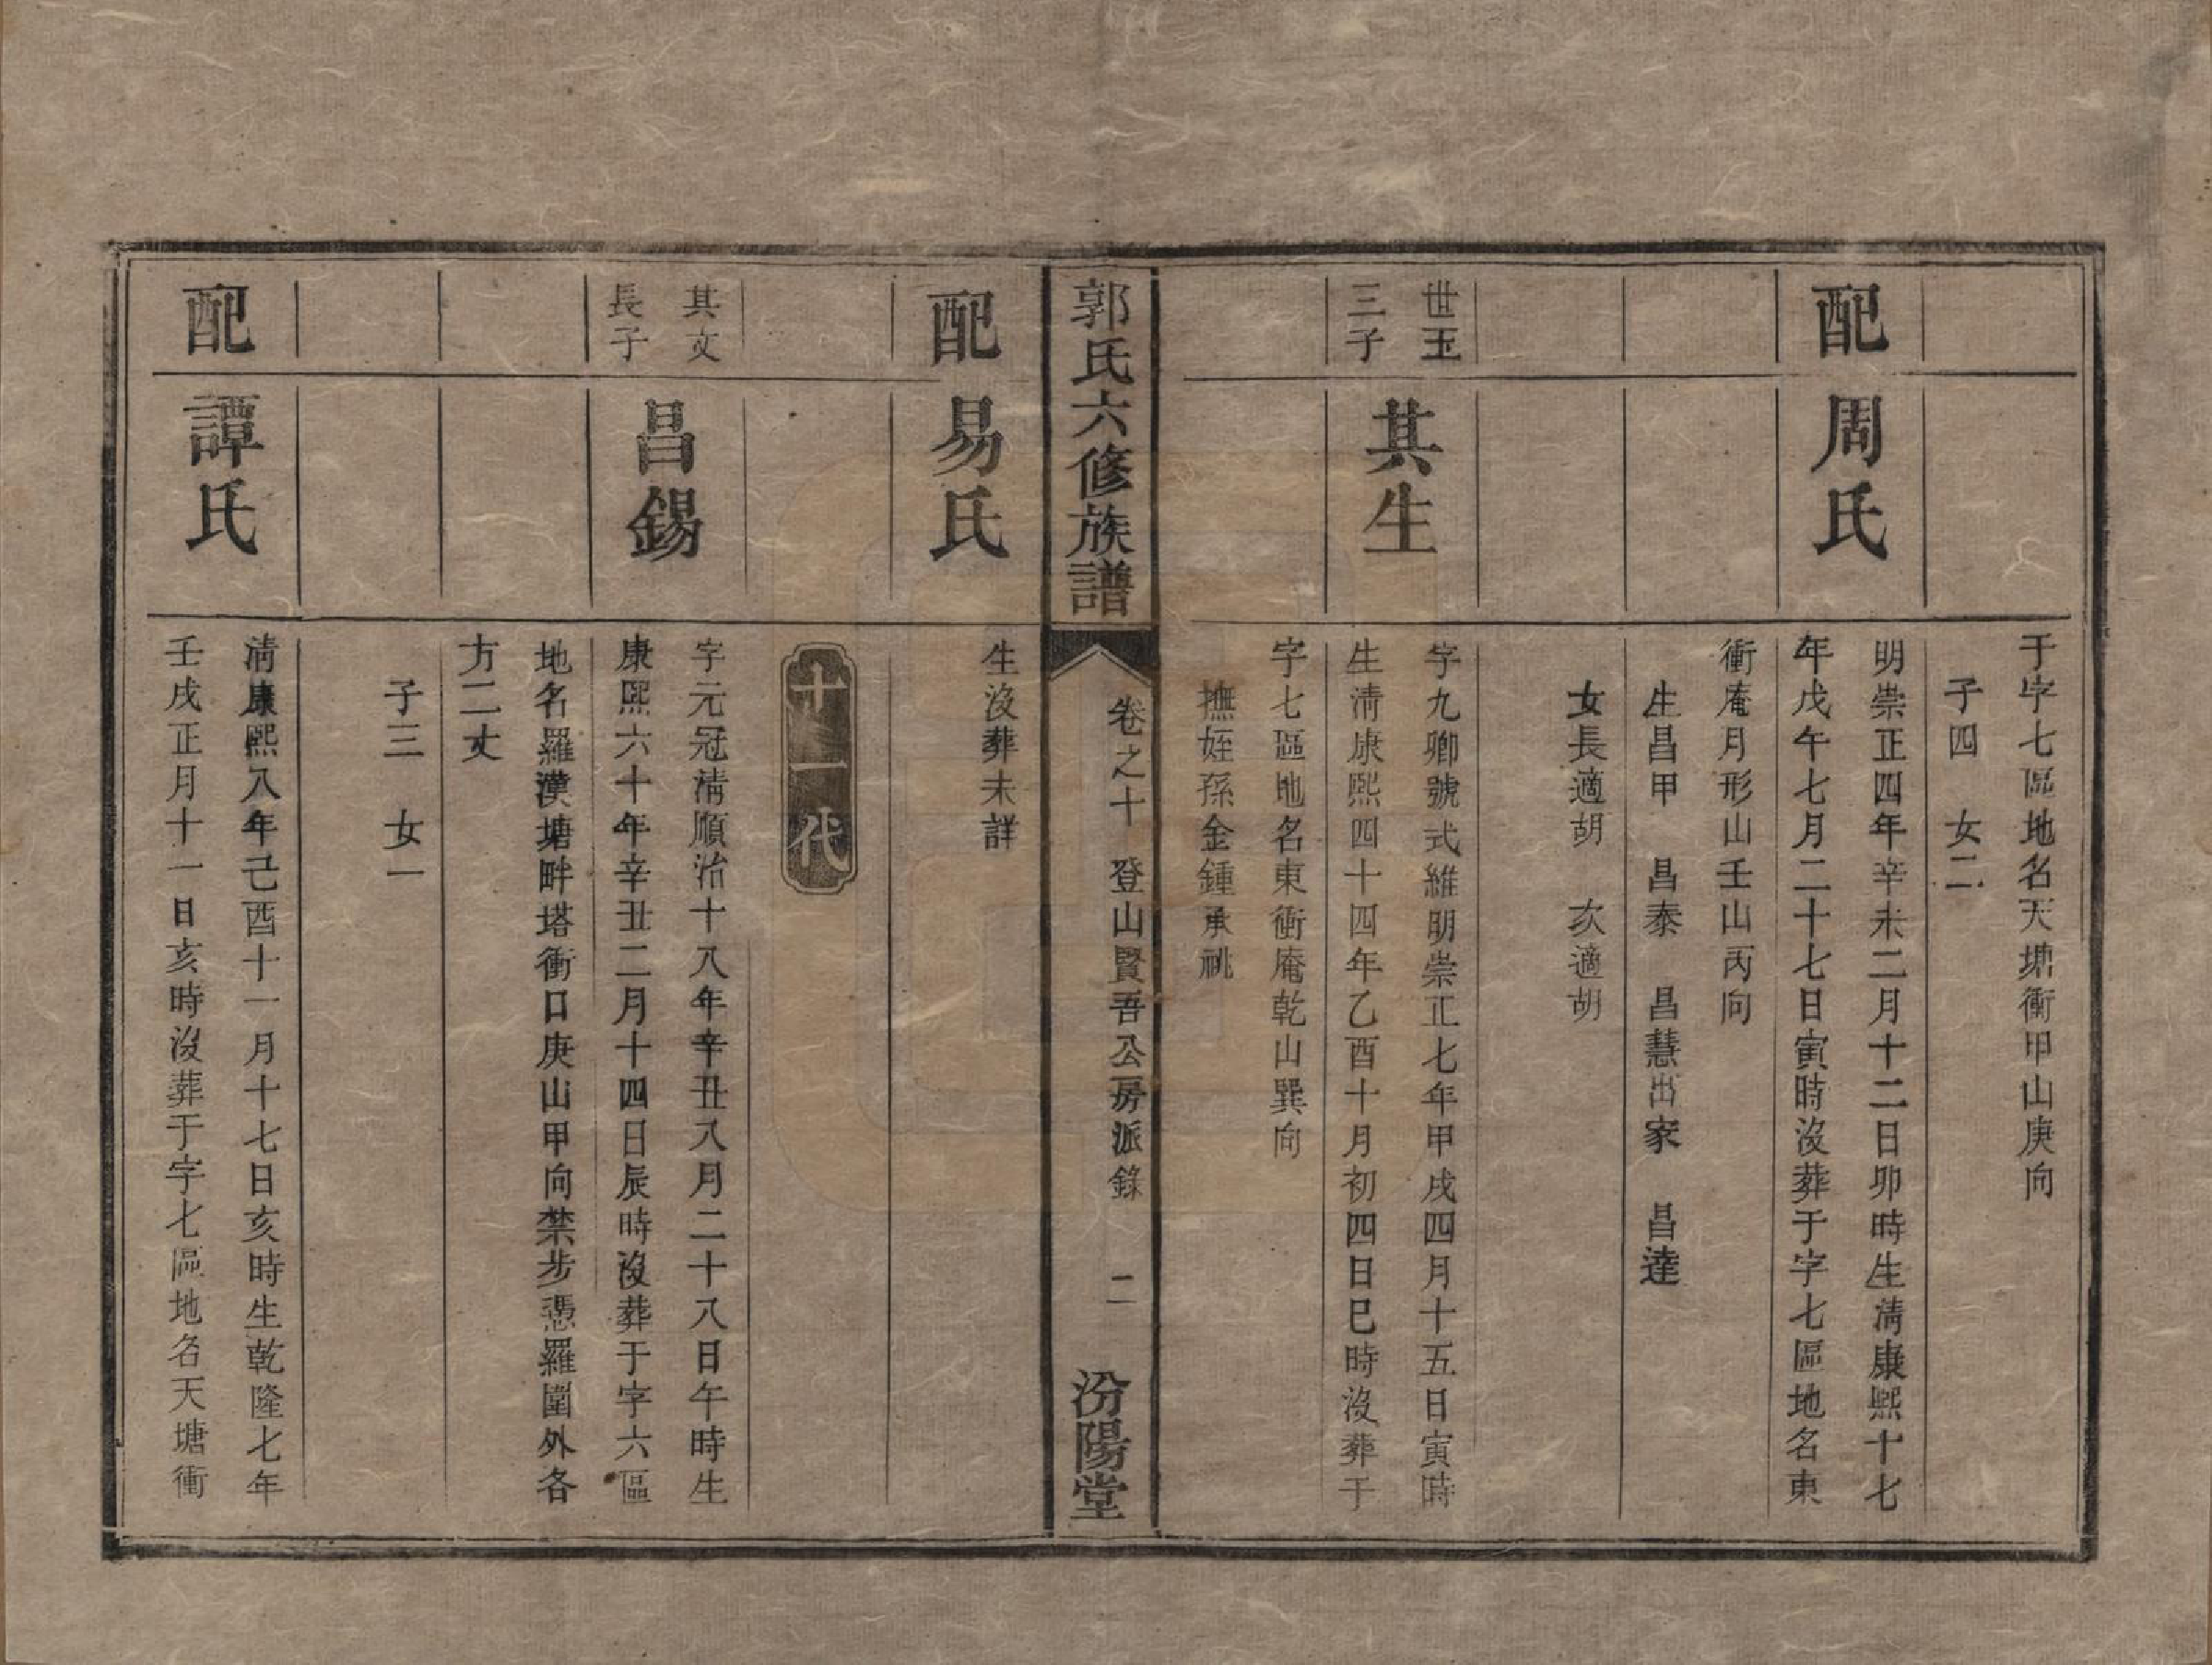 于字七區地名天塘衝甲山庚向
子四　女二
配
周氏
明崇正四年辛未二月十二日卯時生清康熙十七
年戊午七月二十七日寅時沒葬于字七區地名東
衝庵月形山壬山丙向
生昌甲　昌泰　昌慧出家　昌達
女長適胡　次適胡
世玉
三子
其生
字九卿號式維明崇正七年甲戌四月十五日寅時
生清康熙四十四年乙酉十月初四日巳時沒葬于
字七區地名東衝庵乾山巽向
撫姪孫金鍾承祧
郭氏六修族譜
卷之十　登山賢吾公房派錄　二
汾陽堂
配
易氏
生沒葬未詳
十一代
其文
長子
昌錫
字元冠清順治十八年辛丑八月二十八日午時生
康熙六十年辛丑二月十四日辰時沒葬于字六區
地名羅漢塘畔塔衝口庚山甲向禁步憑羅圍外各
方二丈
子三　女一
配
譚氏
清康熙八年己酉十一月十七日亥時生乾隆七年
壬戌正月十一日亥時沒葬于字七區地名天塘衝